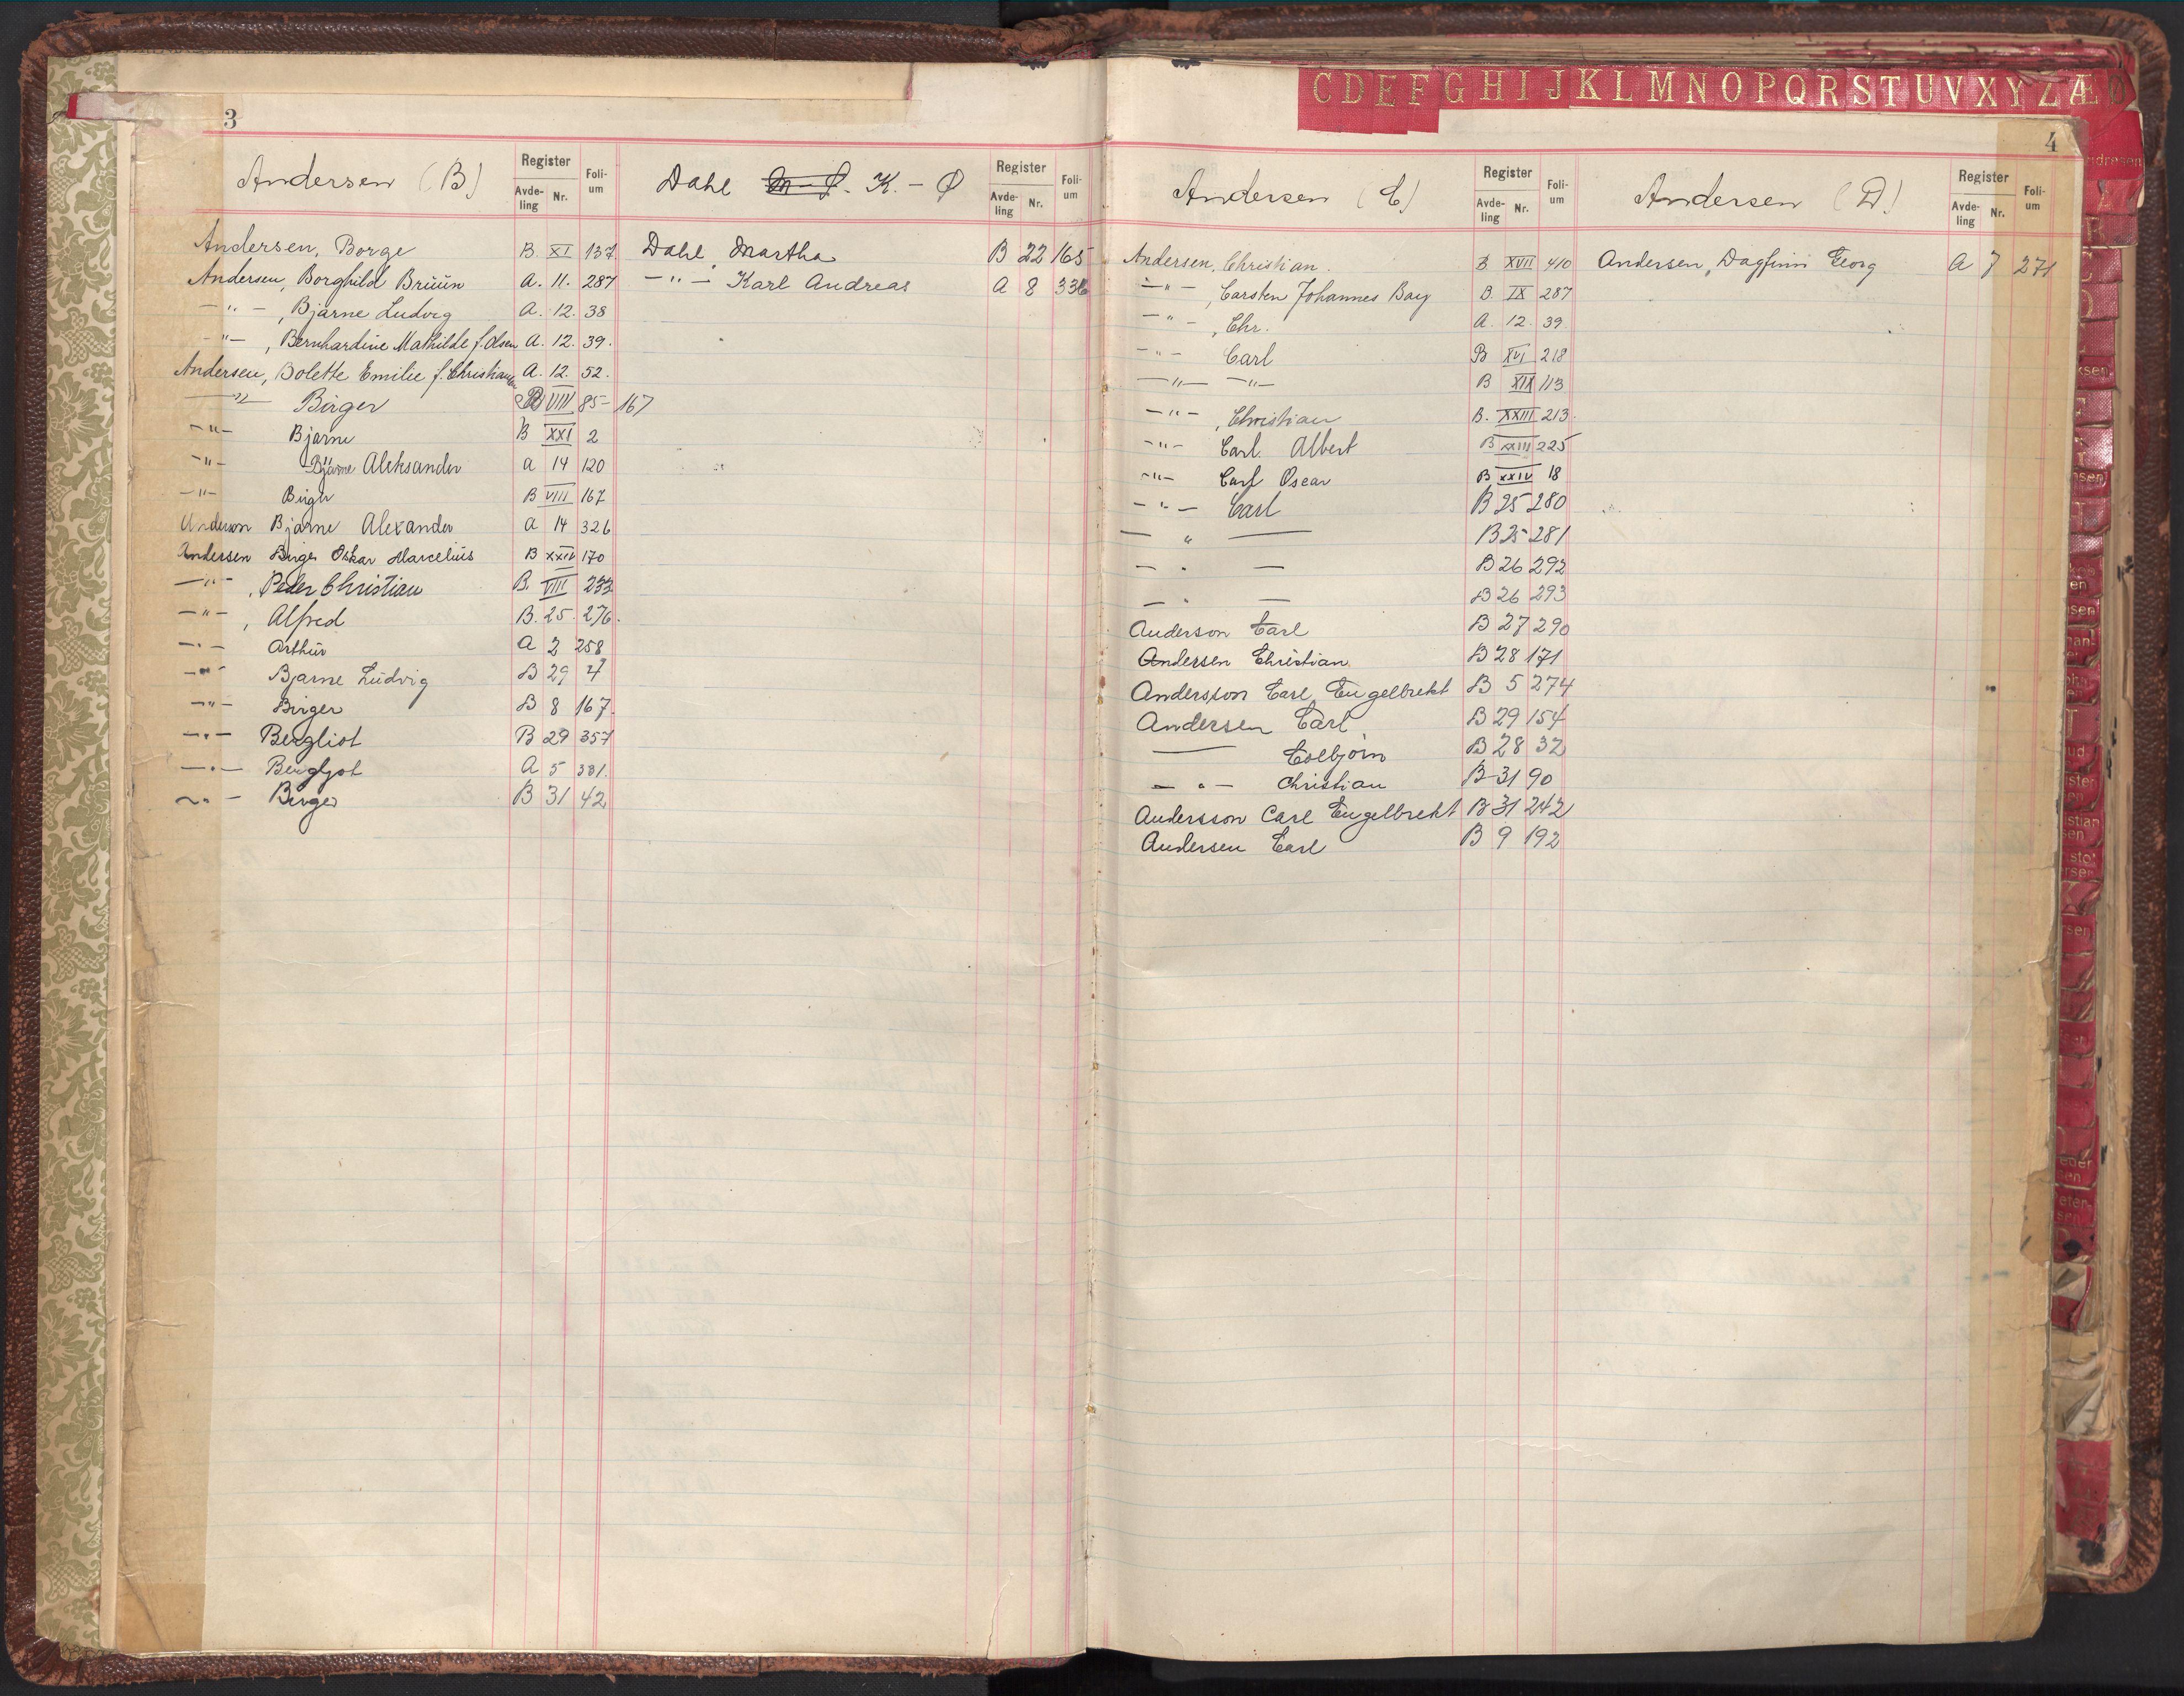 C D E F G H I J K L M N O P Q R S T U V X Y Z Æ Ø
3
Andersen (B)
Register
Avde-
ling
Nr.
Foli-
um
Andersen, Borge B. XI 137
Andersen, Borghild Brüün A. 11. 287
—"—, Bjarne Ludvig A. 12. 38
—"—, Bernhardine Mathilde f. Olsen A. 12. 39.
Andersen, Bolette Emilie f. Christiansen A. 12. 52.
—"— Birger B VIII 85-167
—"— Bjarne B XXI 2
—"— Bjarne Aleksander a 14 120
—"— Birger B VIII 167
Anderson Bjarne Alexander a 14 326
Andersen Birger Oskar Marcelius B XXIV 170
—"—, Peder Christian B. VIII 233
—"—, Alfred B. 25. 276.
—"— Arthur a 2 258
—"— Bjarne Ludvig B 29 4
—"— Birger B 8 167.
—"— Bergliot B 29 357
—"— Bergljot A 5 381.
—"— Birger B 31 42
Dahl M-Ø. K.-Ø
Register
Avde-
ling
Nr.
Foli-
um
Dahl, Martha B 22 165
—"— Karl Andreas A 8 336
4
Andersen (C)
Register
Avde-
ling
Nr.
Foli-
um
Andersen, Christian. B XVII 410
—"—, Carsten Johannes Bay B. IX 287
—"—, Chr. A. 12. 39.
—"— Carl B XVI 218
—"— —"— B XIX 113
—"—, Christian B. XXIII 213.
—"— Carl Albert B XXIII 225
—"— Carl Oscar B XXIV 18
—"— Carl B 25 280
—"— — B 25 281
—"— — B 26 292
—"— — B 26 293
Anderson Carl B 27 290
Andersen Christian. B 28 171
Andersson Carl Engelbrekt B 5 274
Andersen Carl B 29 154
— Colbjørn B 28 32
—"— Christian B 31 90
Andersson Carl Engelbrekt B 31 242
Andersen Carl B 9 192
Andersen (D)
Register
Avde-
ling
Nr.
Foli-
um
Andersen, Dagfinn Georg A 7 271